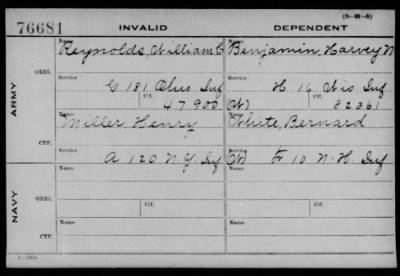 (3-H-5)
76681 INVALID DEPENDENT
ARMY
ORIG.
Name Reynolds, William C Name Benjamin, Harvey N
Service G 181 Ohio Inf Service H 16 Wis Inf
Ctf. 47900 (W) Ctf. 82361
CTF.
Name Miller, Henry Name White, Bernard
Service A 120 N.Y. Inf Service (W) F 10 N.H. Inf
NAVY
ORIG.
Name Name
Service Ctf. Service Ctf.
CTF.
Name Name
Service Service